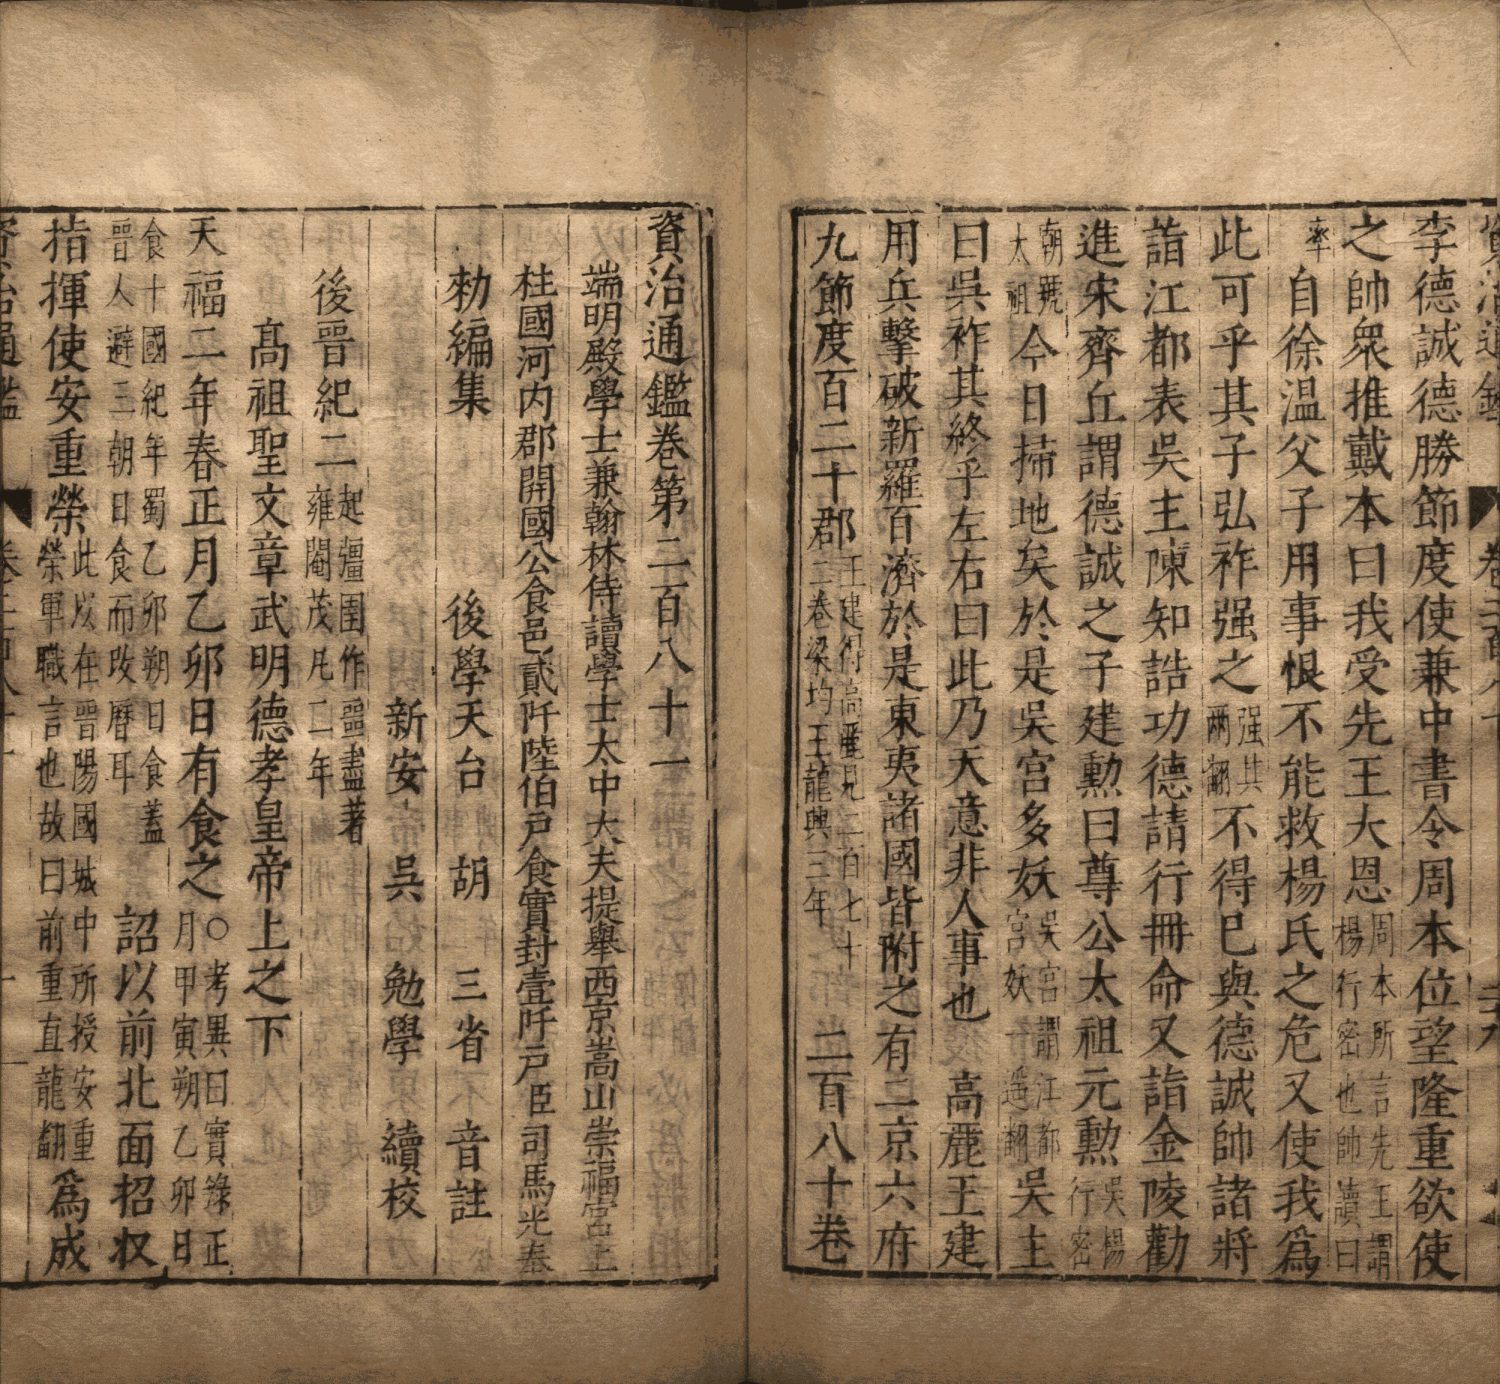 資治通鑑 卷二百八十 二十九
李德誠德勝節度使兼中書令周本位望隆重欲使
之帥衆推戴本曰我受先王大恩周本所言先王謂楊行密也帥讀曰
率自徐温父子用事恨不能救楊氏之危又使我爲
此可乎其子弘祚强之强其兩翻不得已與德誠帥諸將
詣江都表吳主陳知誥功德請行冊命又詣金陵勸
進宋齊丘謂德誠之子建勲曰尊公太祖元勲吳楊行密
朝號太祖今日掃地矣於是吳宮多妖吳宮謂江都宮妖於遥翻吳主
曰吳祚其終乎左右曰此乃天意非人事也 高麗王建
用兵擊破新羅百濟於是東夷諸國皆附之有二京六府
九節度百二十郡王建得高麗見二百七十二卷梁均王龍興三年 二百八十卷
資治通鑑卷第二百八十一
端明殿學士兼翰林侍讀學士太中大夫提舉西京嵩山崇福宮上
柱國河内郡開國公食邑貳阡陸伯戶食實封壹阡戶臣司馬光奉
勑編集 後學天台 胡 三省 音註
新安 吳 勉學 續校
後晉紀二起彊圉作噩盡著雍閹茂凡二年
高祖聖文章武明德孝皇帝上之下
天福二年春正月乙卯日有食之〇考異曰實錄正月甲寅朔乙卯日
食十國紀年蜀乙卯朔日食蓋晉人避三朝日食而改曆耳 詔以前北面招収
指揮使安重榮此以在晉陽國城中所授安重榮軍職言也故曰前重直龍翻爲成
資治通鑑 卷二百八十一 一